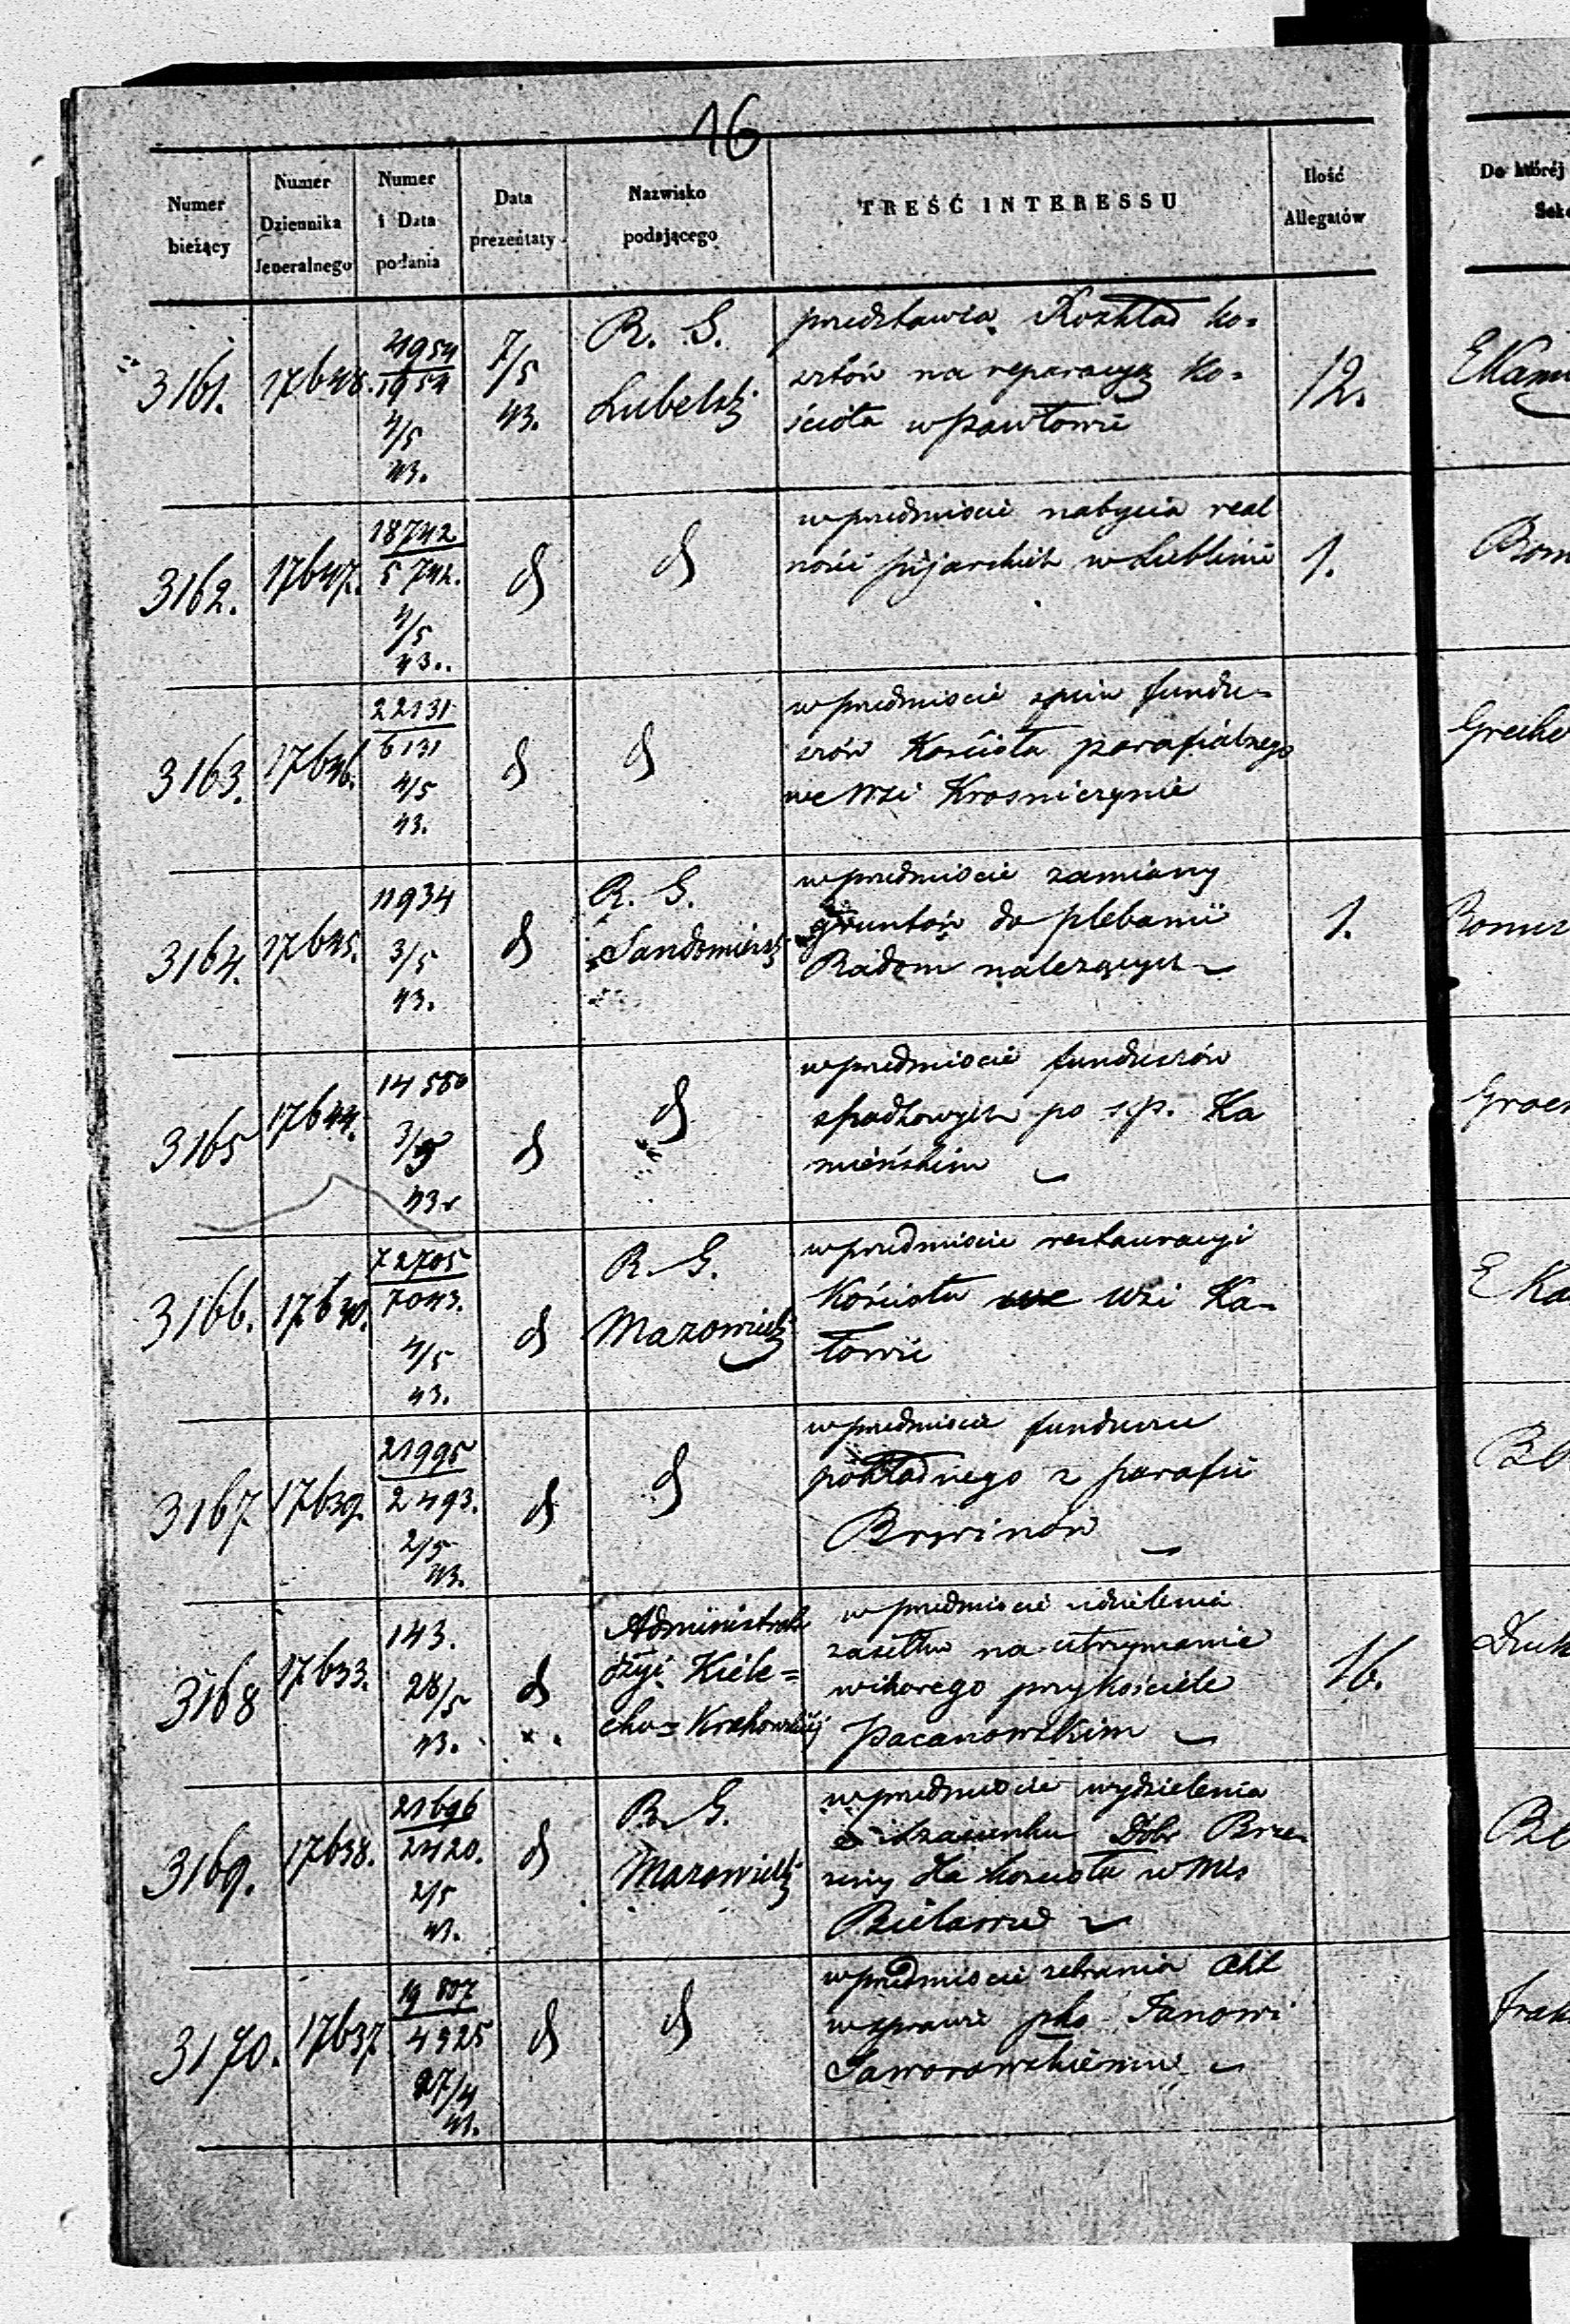 16
Numer bieżący
Numer Dziennika Jeneralnego
Numer i Data podania
Data prezentaty
Nazwisko podającego
TREŚĆ INTERESSU
Ilość Allegatów
Do któréj
3161. 17648. 21954 5954 4/5 43. 7/5 43. R. G. Lubelski 12.
przedstawia Rozkład ko=
sztów na reparacyą Ko=
ścioła w Pawłowie
3162. 17647. 18742 5742. 4/5 43. d d 1.
w przedmiocie nabycia real
ności pijarskich w Lublinie
Bom
3163. 17646. 22131 6131 4/5 43. d d
w przedmiocie spisu fundu=
szów Kościoła parafialnego
we Wsi Krasniczynie
3164. 17645. 11934 3/5 43. d R. G. Sandomierski 1.
w przedmiocie zamiany
gruntów do plebanii
Radom należących
3165 17644. 3/5 43. d d
w przedmiocie funduszów
spadkowych po s.p. Ka
mieńskim
3166. 17640. 72705 7043. 4/5 43. d R. G. Mazowiecki
w przedmiocie restauracyi
Kościoła Wsi Ka=
łowie
E Ka
3167 17639. 21995 2493. 2/5 43. d d
w przedmiocie funduszu
pokładnego z parafii
Brwinow
3168 17633. 143. 28/5 43. d 16.
Administrat
dyi Kiele=
cko=Krakowskiej
w przedmiocie udzielenia
zasiłku na utrzymanie
wikarego przy kościele
Pacanowskim
3169. 17638. 21696 2420. 2/5 43. d R. G. Mazowiecki
w przedmiocie wydzielenia
szacunku Dóbr Brze=
ziny dla kościoła w Mie
Bielawie
3170. 17637 19807 4925 27/4 43. d d
w przedmiocie zebrania Akt
w sprawie pko Janowi
Jaworowskiemu